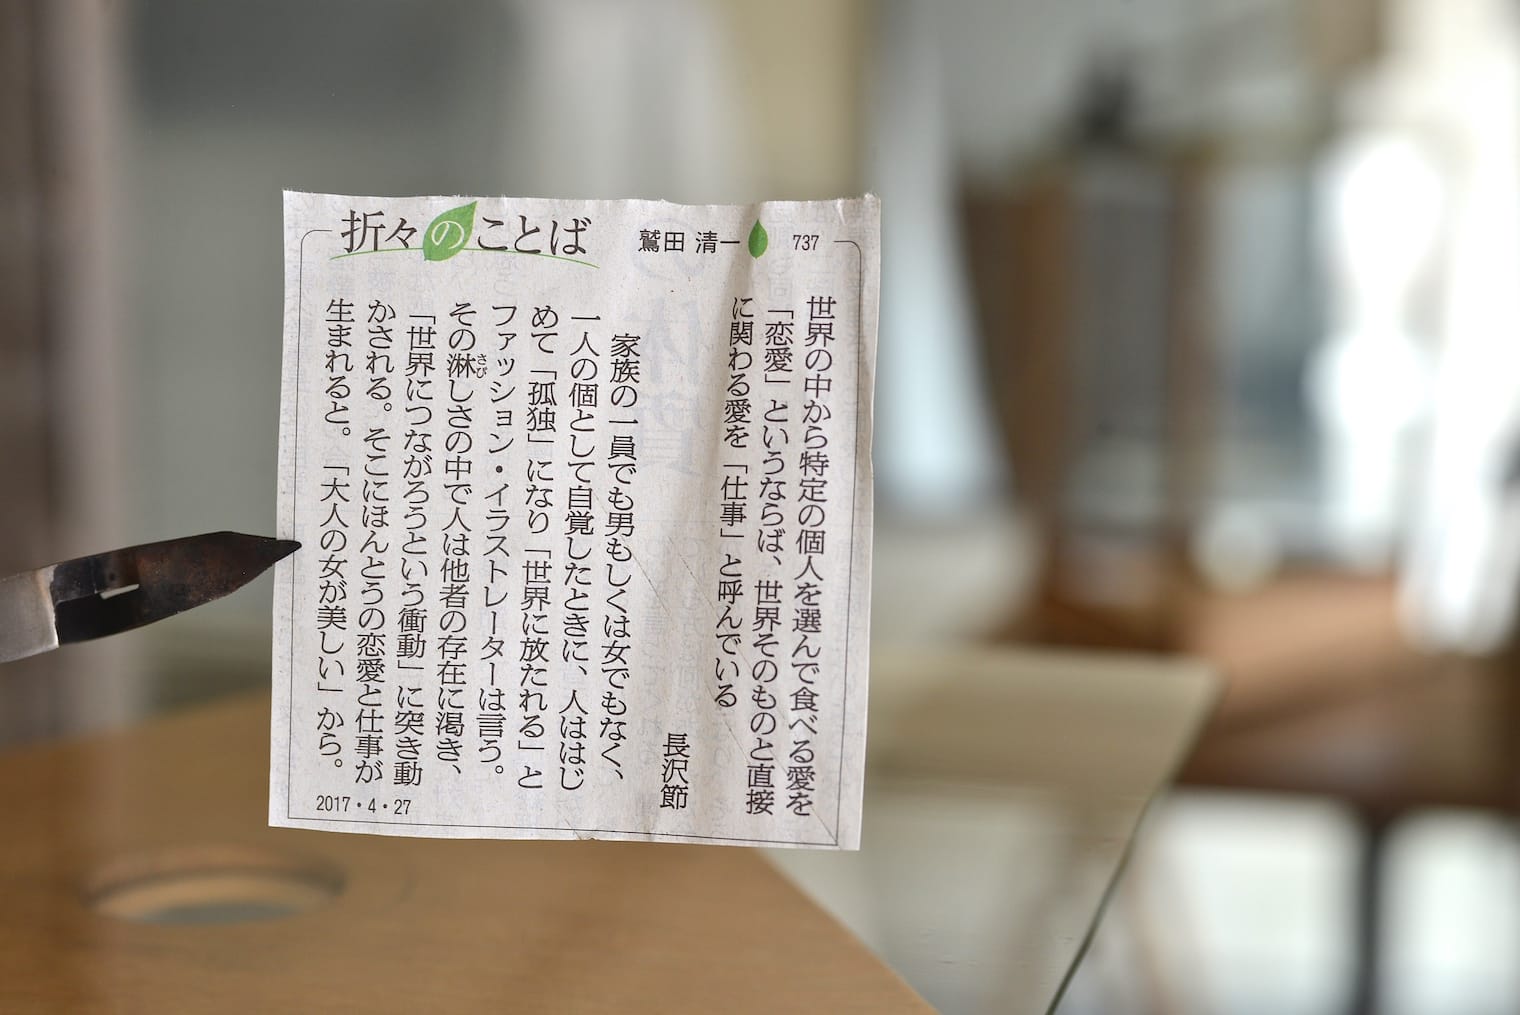 折々のことば 鷲田 清一 737
世界の中から特定の個人を選んで食べる愛を
「恋愛」というならば、世界そのものと直接
に関わる愛を「仕事」と呼んでいる
長沢節
家族の一員でも男もしくは女でもなく、
一人の個として自覚したときに、人ははじ
めて「孤独」になり「世界に放たれる」と
ファッション・イラストレーターは言う。
その淋しさの中で人は他者の存在に渇き、
さび
「世界につながろうという衝動」に突き動
かされる。そこにほんとうの恋愛と仕事が
生まれると。「大人の女が美しい」から。
2017・4・27